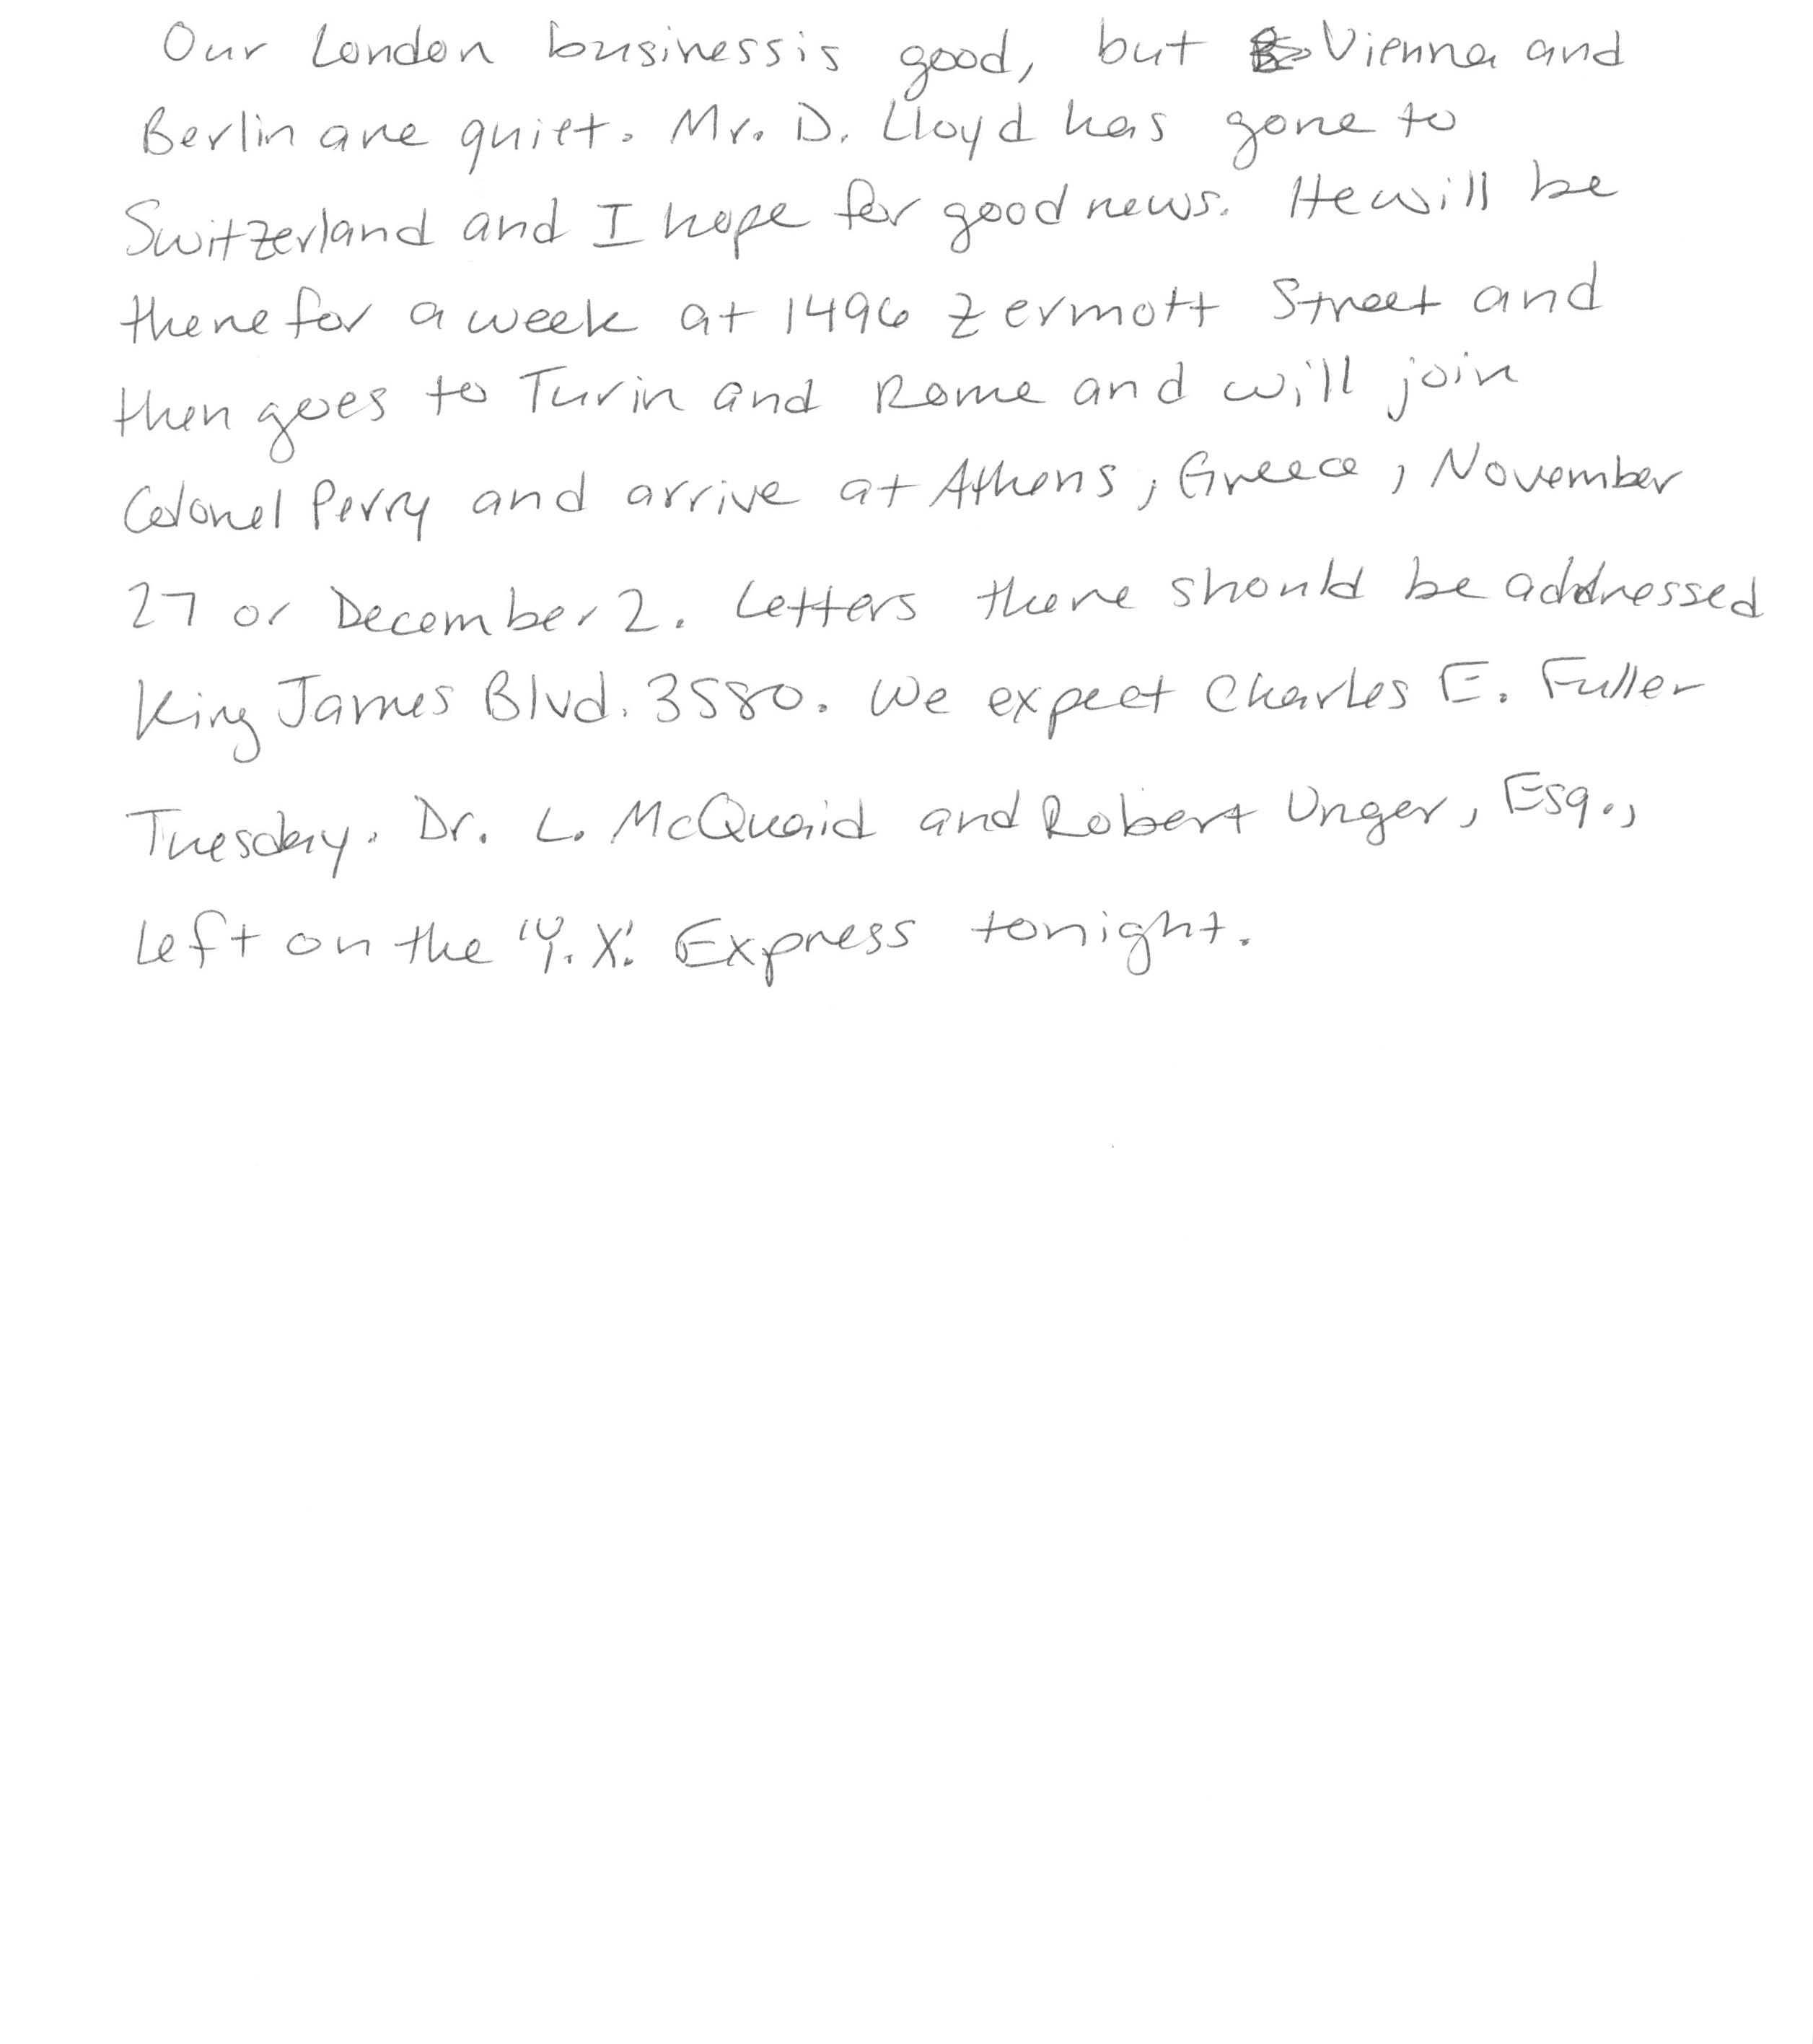 Our London business is good, but Vienna and
Berlin are quiet. Mr. D. Lloyd has gone to
Switzerland and I hope for good news. He will be
there for a week at 1496 Zermott Street and
then goes to Turin and Rome and will join
Colonel Perry and arrive at Athens, Greece, November
27 or December 2. Letters there should be addressed
King James Blvd. 3580. We expect Charles E. Fuller
Tuesday. Dr. L. McQuaid and Robert Unger, Esq.,
left on the "Y.X." Express tonight.